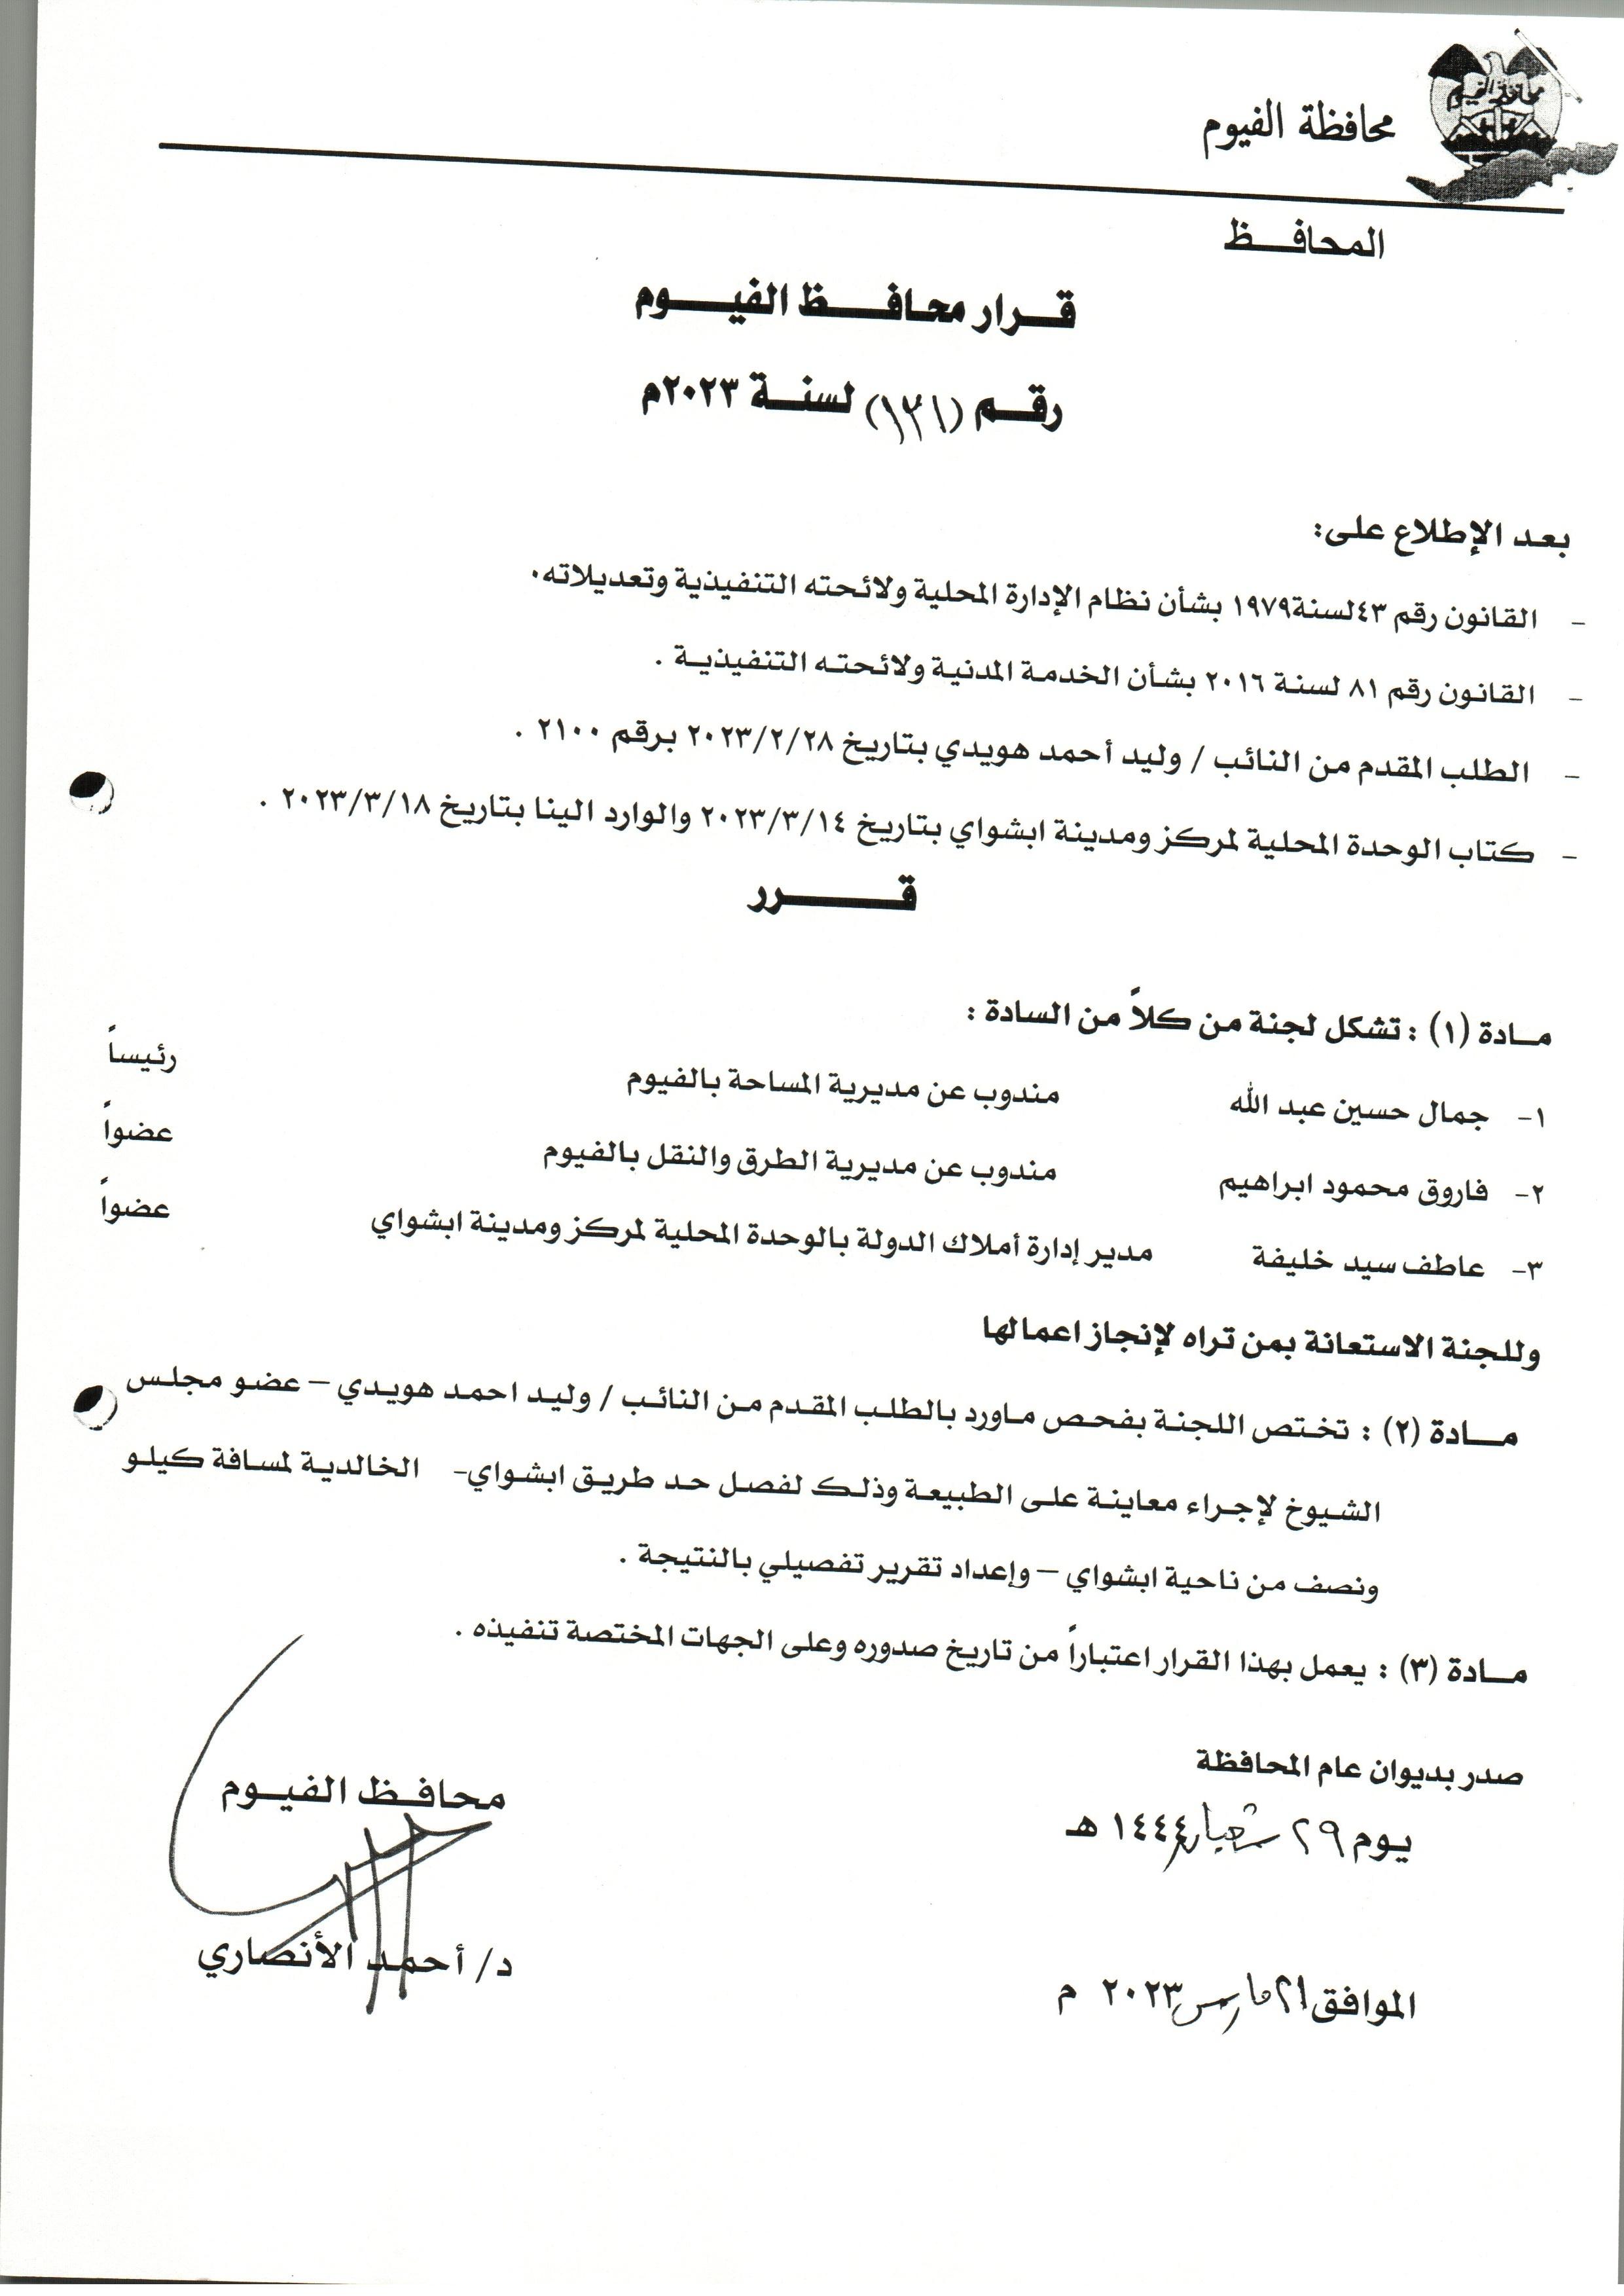 محافظة الفيوم
محافظة الفيوم
المحافــظ
قــرار محافــــظ الفيــــوم
رقــم (١٢١) لسنــة ٢٠٢٣م
بعد الإطلاع على:
- القانون رقم ٤٣لسنة١٩٧٩ بشأن نظام الإدارة المحلية ولائحته التنفيذية وتعديلاته.
- القانون رقم ٨١ لسنة ٢٠١٦ بشأن الخدمة المدنية ولائحته التنفيذية .
- الطلب المقدم من النائب / وليد أحمد هويدي بتاريخ ٢٠٢٣/٢/٢٨ برقم ٢١٠٠ .
- كتاب الوحدة المحلية لمركز ومدينة ابشواي بتاريخ ٢٠٢٣/٣/١٤ والوارد الينا بتاريخ ٢٠٢٣/٣/١٨ .
قــــــرر
مــادة (١) : تشكل لجنة من كلاً من السادة :
١- جمال حسين عبد الله مندوب عن مديرية المساحة بالفيوم رئيساً
٢- فاروق محمود ابراهيم مندوب عن مديرية الطرق والنقل بالفيوم عضواً
٣- عاطف سيد خليفة مدير إدارة أملاك الدولة بالوحدة المحلية لمركز ومدينة ابشواي عضواً
وللجنة الاستعانة بمن تراه لإنجاز اعمالها
مــادة (٢) : تختص اللجنة بفحص ماورد بالطلب المقدم من النائب / وليد احمد هويدي – عضو مجلس
الشيوخ لإجراء معاينة على الطبيعة وذلك لفصل حد طريق ابشواي- الخالدية لمسافة كيلو
ونصف من ناحية ابشواي – وإعداد تقرير تفصيلي بالنتيجة .
مــادة (٣) : يعمل بهذا القرار اعتباراً من تاريخ صدوره وعلى الجهات المختصة تنفيذه .
صدر بديوان عام المحافظة
يوم ٢٩ شعبان ١٤٤٤ هـ
الموافق ٢١ مارس ٢٠٢٣ م
محافــظ الفيــوم
د/ أحمد الأنصاري